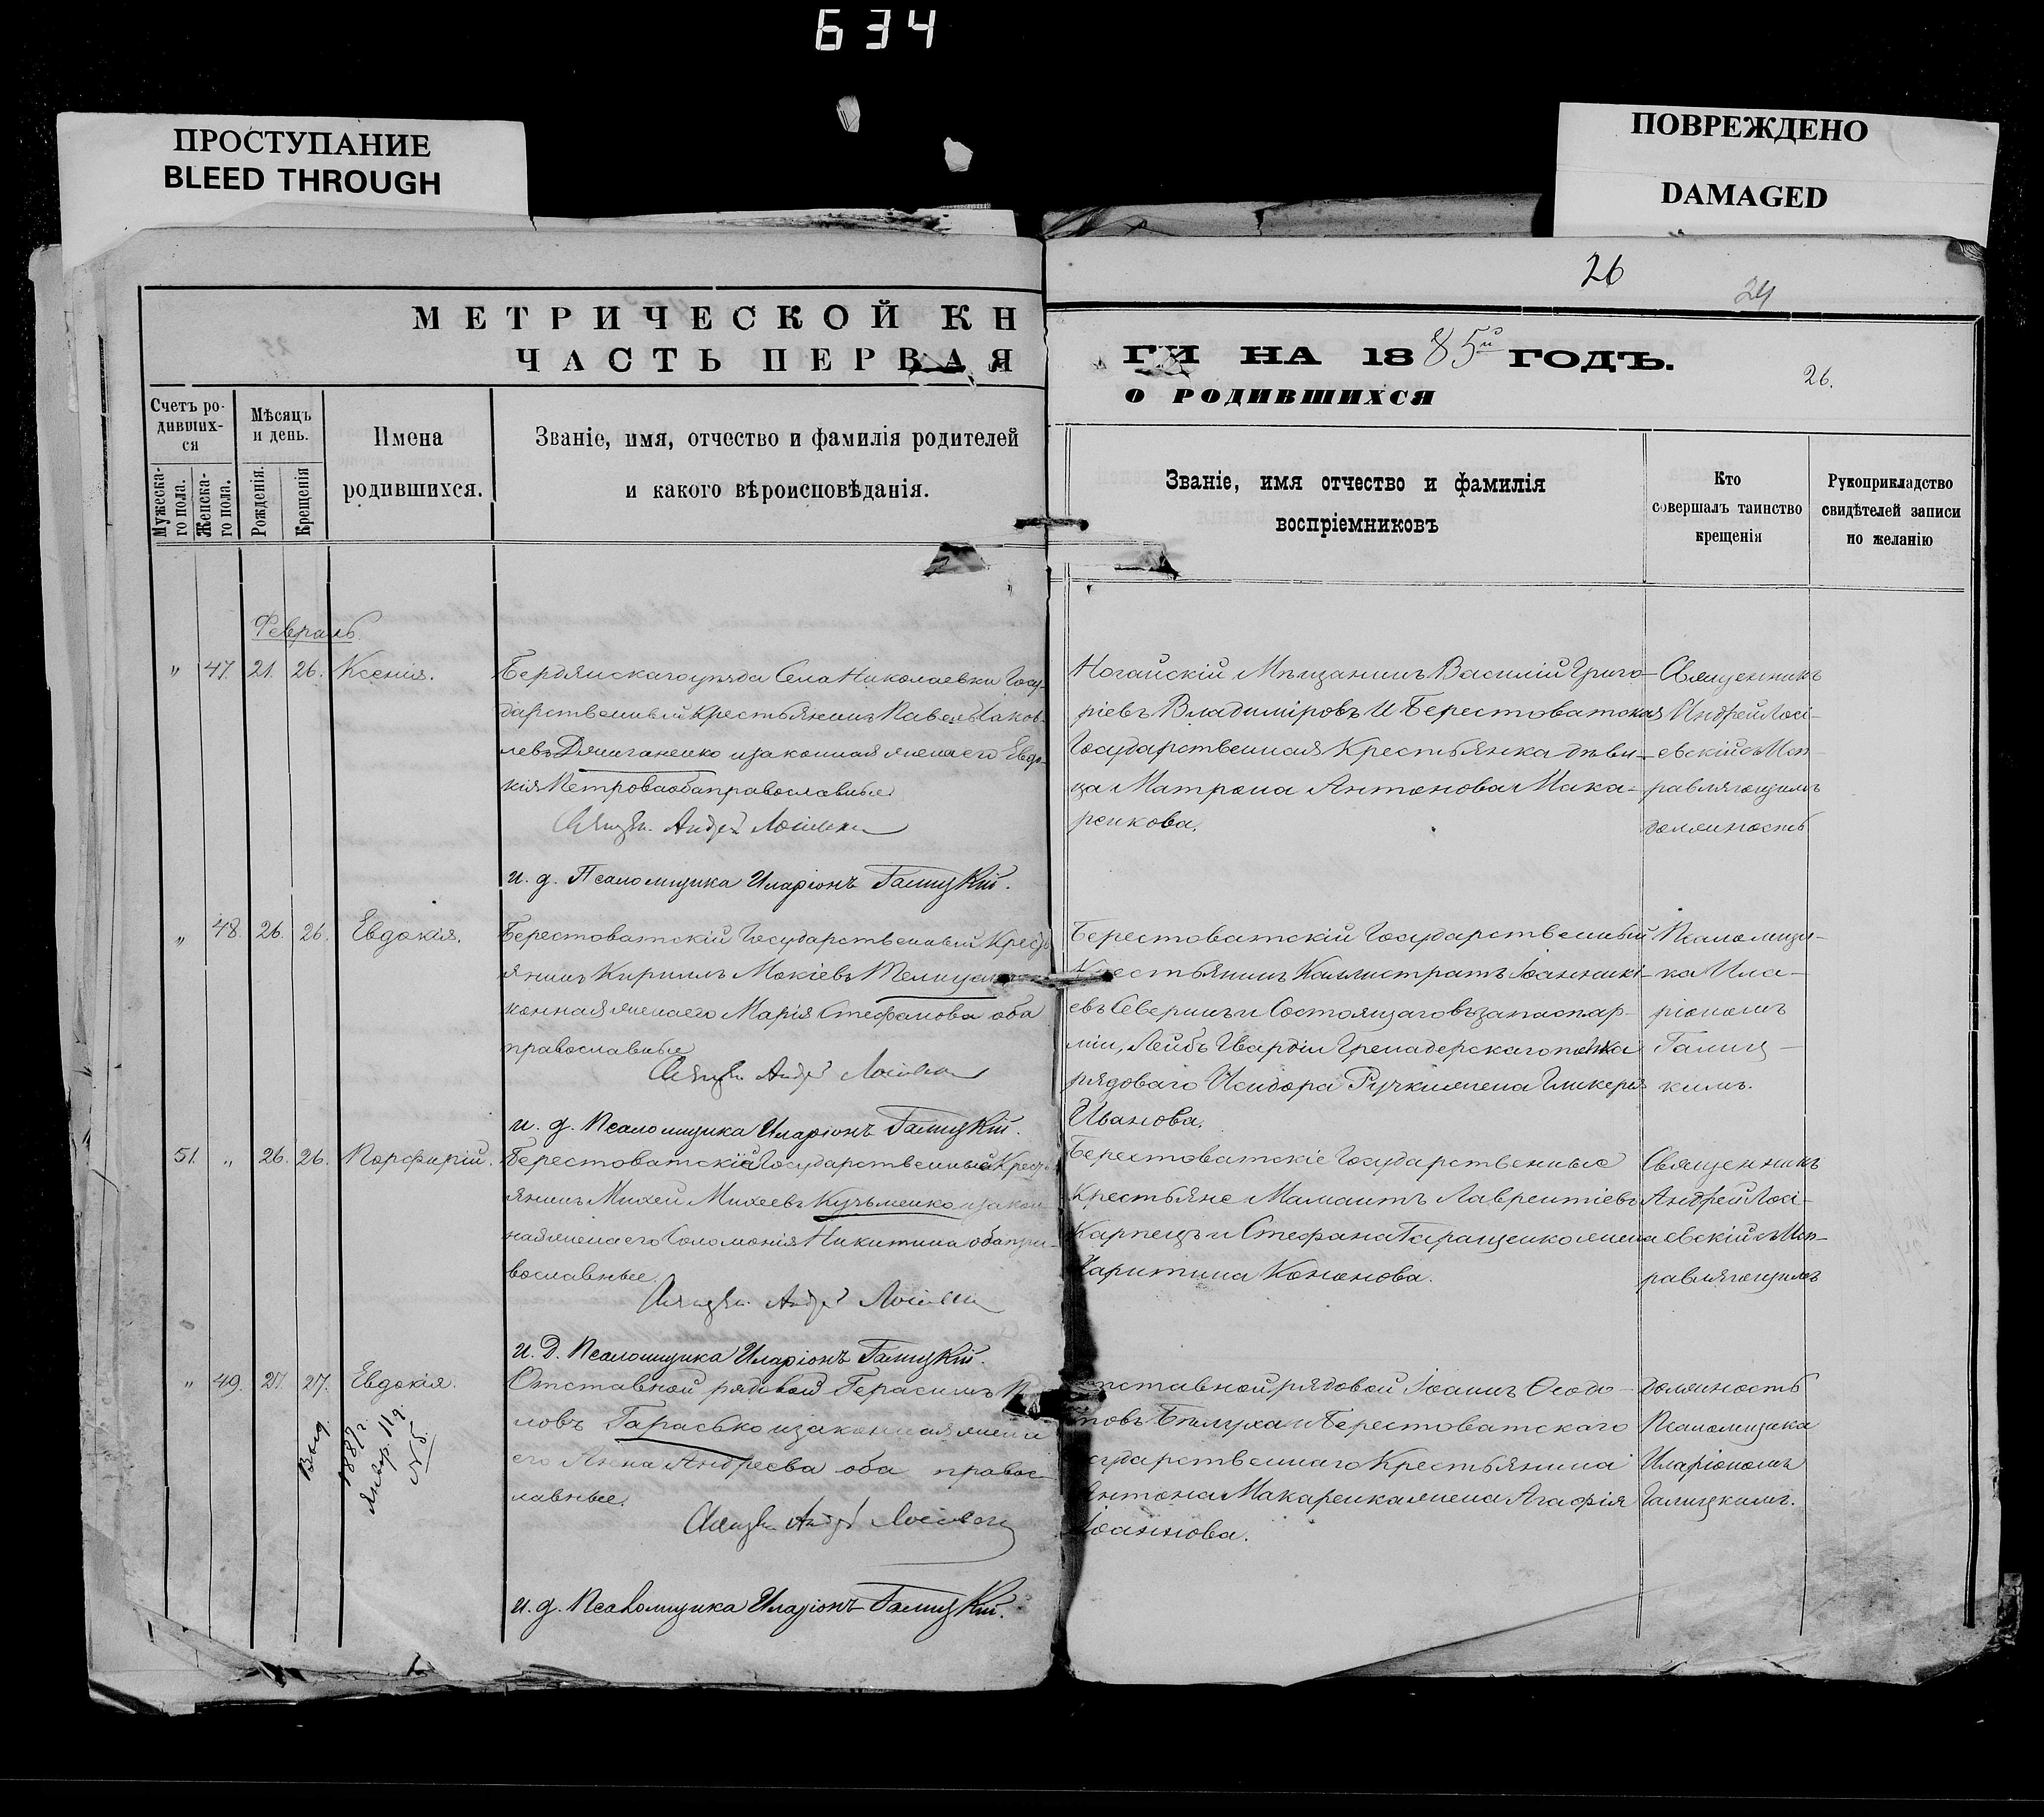 634
ПРОСТУПАНИЕ
BLEED THROUGH
ПОВРЕЖДЕНО
DAMAGED
26
24
МЕТРИЧЕСКОЙ КН
ЧАСТЬ ПЕРВАЯ
ГИ НА 1885й ГОДЪ.
О РОДИВШИХСЯ
26.
Счетъ ро-
дивших-
ся
Мужеска-
го пола.
Женска-
го пола.
Мѣсяцъ
и день.
Рожденія.
Крещенія
Имена
родившихся.
Званіе, имя, отчество и фамилія родителей
и какого вѣроисповѣданія.
Званіе, имя отчество и фамилія
воспріемниковъ
Кто
совершалъ таинство
крещенія
Рукоприкладство
свидѣтелей записи
по желанію
Февраль.
" 47. 21. 26. Ксенія.
Бердянскаго уѣзда Села Николаевки Госу-
дарственный Крестьянинъ Павелъ Іаков-
левъ и законная жена его Евдо-
кія Петрова оба православные
Священ. Андрей Лосіевскій
и. д. Псаломщика Иларіонъ Галицкій.
Ногайскій Мѣщанинъ Василій Григо-
ріевъ Владиміровъ и Берестоватская
Государственная Крестьянка дѣви-
ца Матрона Антонова Мака-
ренкова.
Священникъ
Андрей Лосі-
евскій съ Исп-
равляющимъ
должность
" 48. 26. 26. Евдокія.
Берестоватскій Государственный Кресть
янинъ Кириллъ Мокіевъ
конная жена его Марія Стефанова оба
православные
Священ. Андрей Лосіевскій
и. д. Псаломщика Иларіонъ Галицкій.
Берестоватскій Государственный
Крестьянинъ Каллистратъ Іоанникі-
евъ Северинъ и Состоящаго въ запас. ар-
міи, Лейбъ Гвардіи Гренадерскаго полка
рядоваго Исидора Ручки жена Гликерія
Иванова.
Псаломщи-
ка Ила-
ріономъ
Галиц-
кимъ.
51. " 26. 26. Порфирій.
Берестоватскій Государственный Кресть
янинъ Михей Михеевъ Кузьменко и закон
ная жена его Соломонія Никитина оба пра-
вославные.
Священ. Андрей Лосіевскій
и. д. Псаломщика Иларіонъ Галицкій.
Берестоватскіе Государственные
Крестьяне Мамантъ Лаврентіевъ
Карпецъ и Стефана Таращенко жена
Харитина Кононова.
Священникъ
Андрей Лосі-
евскій съ Исп-
равляющимъ
" 49. 27. 27. Евдокія.
Выд.
1887 г.
Январ. 11 д.
№ 5.
Отставной рядовой Герасимъ
ловъ Тарасько и законная жена
его Анна Андреева оба правос-
лавные.
Священ. Андрей Лосіевскій
и. д. Псаломщика Иларіонъ Галицкій.
тставной рядовой Іоаннъ Ѳеодо-
товъ Билуха и Берестоватскаго
сударственнаго Крестьянина
Антона Макаренка жена Агафія
Іоаннова.
должность
Псаломщика
Иларіономъ
Галицкимъ.